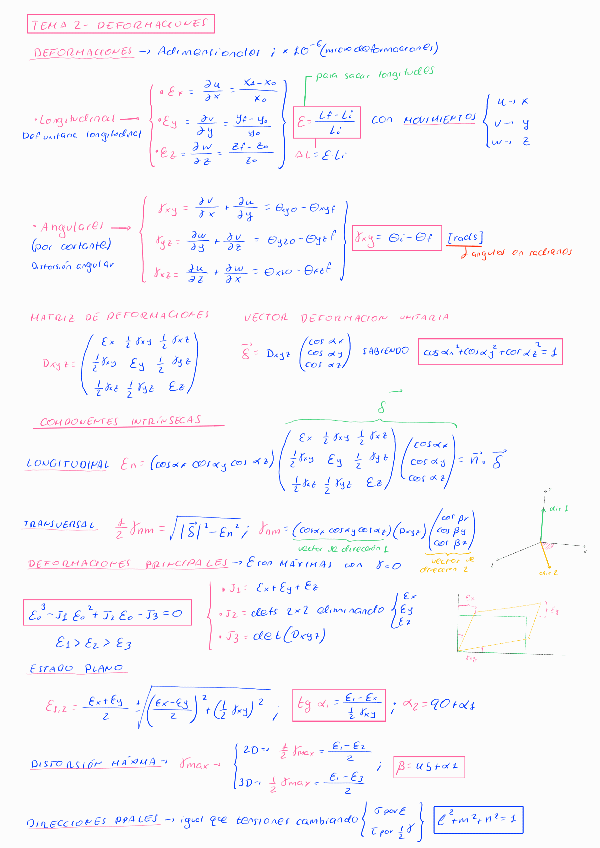 TEMA 2- DEFORMACIONES
DEFORMACIONES → Adimensionales ; × 10⁻⁶ (microdeformaciones)
para sacar longitudes
• Longitudinal → • εx = ∂u/∂x = (xf-xo)/xo
Def unitaria longitudinal • εy = ∂v/∂y = (yf-yo)/yo
• εz = ∂w/∂z = (zf-zo)/zo
ε = (Lf-Li)/Li
ΔL = ε Li
CON MOVIMIENTOS u → x
v → y
w → z
• Angulares →
(por cortante)
Distorsión angular
γxy = ∂v/∂x + ∂u/∂y = θxyo - θxyf
γyz = ∂w/∂y + ∂v/∂z = θyzo - θyzf
γxz = ∂u/∂z + ∂w/∂x = θxzo - θxzf
γxy = θi - θf [rads]
angulos en radianes
MATRIZ DE DEFORMACIONES VECTOR DEFORMACION UNITARIA
Dxyz = ( εx ½ γxy ½ γxz
½ γxy εy ½ γyz
½ γxz ½ γyz εz )
δ⃗ = Dxyz (cos αx cos αy cos αz) SABIENDO cos αx² + cos αy² + cos αz² = 1
COMPONENTES INTRÍNSECAS
δ⃗
LONGITUDINAL εn = (cos αx cos αy cos αz) ( εx ½ γxy ½ γxz
½ γxy εy ½ γyz
½ γxz ½ γyz εz ) (cos αx cos αy cos αz) = n⃗ · δ⃗
TRANSVERSAL ½ γnm = √(|δ⃗|² - εn²) ; γnm = (cos αx cos αy cos αz) (Dxyz) (cos βx cos βy cos βz)
vector de dirección 1
vector de dirección 2
DEFORMACIONES PRINCIPALES → ε son MÁXIMAS con γ=0
εo³ - J1 εo² + J2 εo - J3 = 0
ε1 > ε2 > ε3
• J1 = εx + εy + εz
• J2 = dets 2x2 eliminando εx εy εz
• J3 = det (Dxyz)
ESTADO PLANO
ε1,2 = (εx+εy)/2 ± √(((εx-εy)/2)² + (½ γxy)²) ; tg α1 = (ε1-εx)/(½ γxy) ; α2 = 90 + α1
DISTORSIÓN MÁXIMA → γmax → 2D → ½ γmax = (ε1-ε2)/2
3D → ½ γmax = (ε1-ε3)/2
; β = 45 + α1
DIRECCIONES PPALES → igual que tensiones cambiando σ por ε
τ por ½ γ
l² + m² + n² = 1